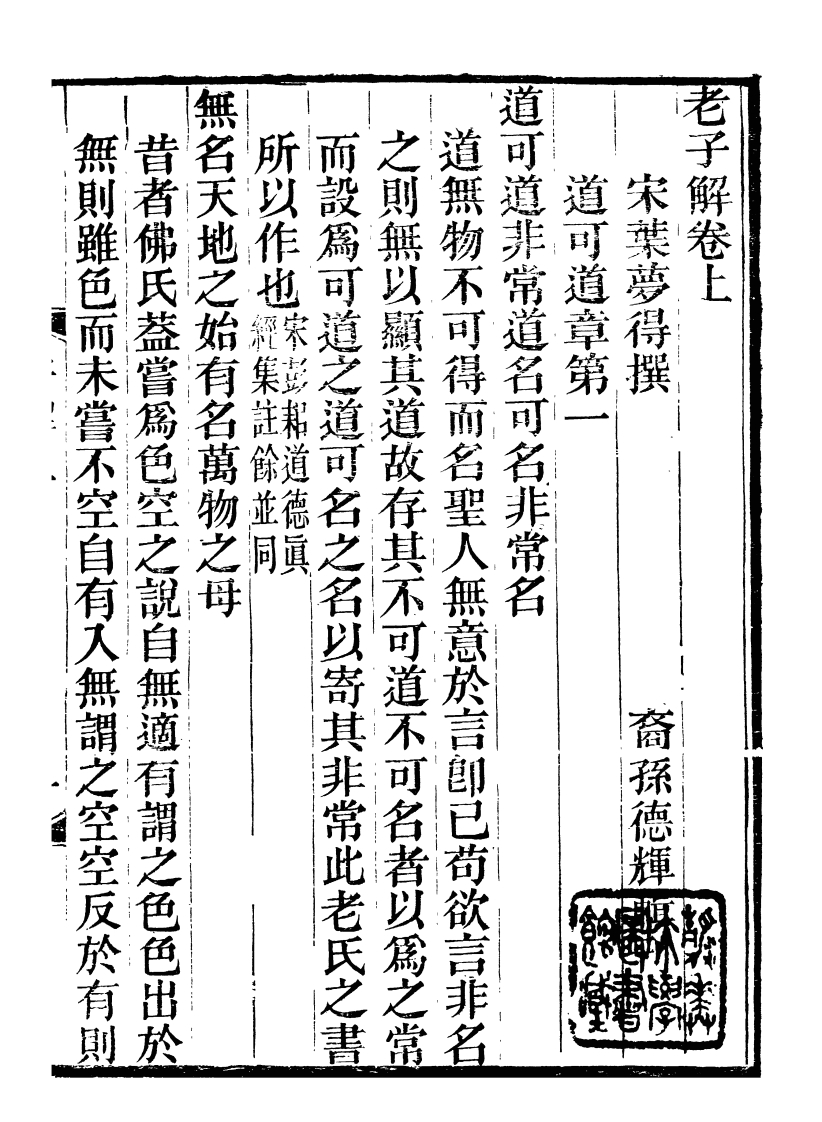 老子解卷上
宋葉夢得撰
裔孫德輝
道可道章第一
道可道非常道名可名非常名
道無物不可得而名聖人無意於言卽已苟欲言非名
之則無以顯其道故存其不可道不可名者以爲之常
而設爲可道之道可名之名以寄其非常此老氏之書
所以作也宋彭耜道德眞
經集註餘並同
無名天地之始有名萬物之母
昔者佛氏葢嘗爲色空之說自無適有謂之色色出於
無則雖色而未嘗不空自有入無謂之空空反於有則